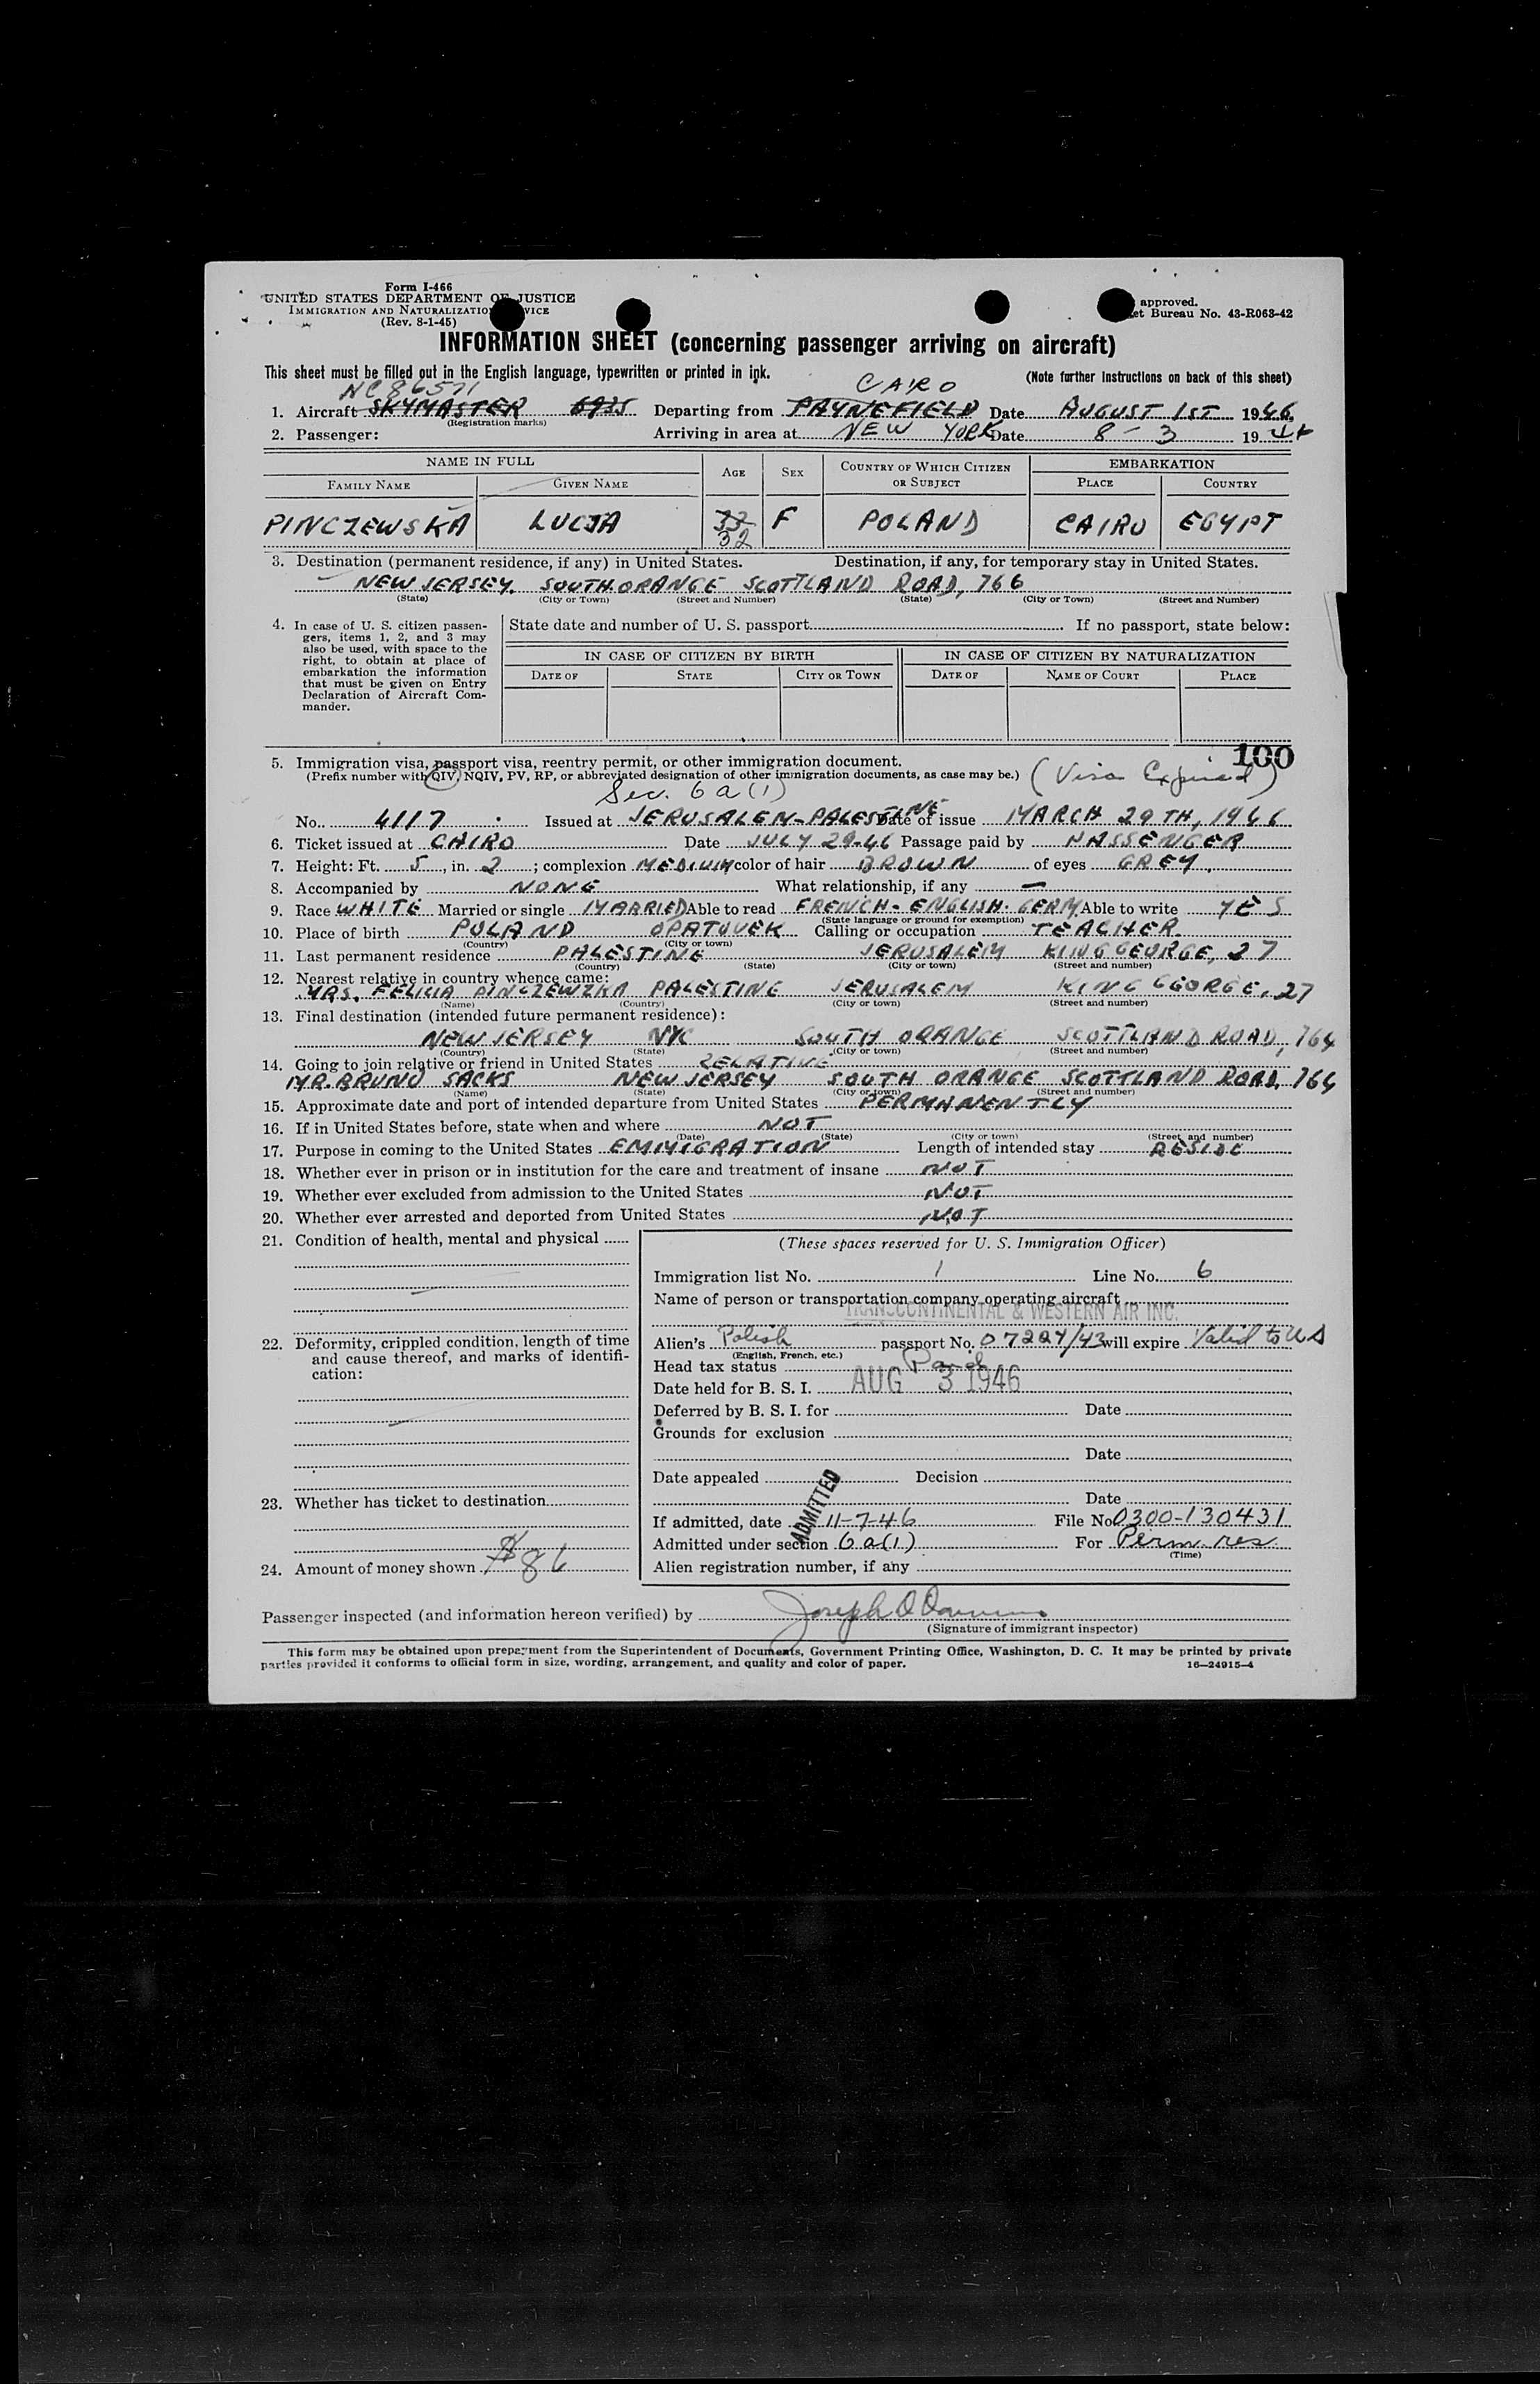 Form I-466
UNITED STATES DEPARTMENT OF JUSTICE
IMMIGRATION AND NATURALIZATION SERVICE
(Rev. 8-1-45)
approved.
et Bureau No. 43-R063-42
INFORMATION SHEET (concerning passenger arriving on aircraft)
This sheet must be filled out in the English language, typewritten or printed in ink.
(Note further instructions on back of this sheet)
NC86571 CAIRO
1. Aircraft SKYMASTER 6935 Departing from PAYNEFIELD Date AUGUST 1ST 1946
(Registration marks)
2. Passenger: Arriving in area at NEW YORK Date 8-3 1946
NAME IN FULL AGE SEX COUNTRY OF WHICH CITIZEN OR SUBJECT EMBARKATION
FAMILY NAME GIVEN NAME PLACE COUNTRY
PINCZEWSKA LUCJA 32 F POLAND CAIRO EGYPT
3. Destination (permanent residence, if any) in United States. Destination, if any, for temporary stay in United States.
NEW JERSEY. SOUTH ORANGE SCOTTLAND ROAD, 766
(State) (City or Town) (Street and Number) (State) (City or Town) (Street and Number)
4. In case of U. S. citizen passengers, items 1, 2, and 3 may also be used, with space to the right, to obtain at place of embarkation the information that must be given on Entry Declaration of Aircraft Commander.
State date and number of U. S. passport If no passport, state below:
IN CASE OF CITIZEN BY BIRTH IN CASE OF CITIZEN BY NATURALIZATION
DATE OF STATE CITY OR TOWN DATE OF NAME OF COURT PLACE
100
5. Immigration visa, passport visa, reentry permit, or other immigration document.
(Prefix number with QIV, NQIV, PV, RP, or abbreviated designation of other immigration documents, as case may be.) (Visa Expired)
Sec. 6a(1)
No. 4117 Issued at JERUSALEM-PALESTINE Date of issue MARCH 29TH, 1946
6. Ticket issued at CAIRO Date JULY 29-46 Passage paid by PASSENGER
7. Height: Ft. 5, in. 2; complexion MEDIUM color of hair BROWN of eyes GREY
8. Accompanied by NONE What relationship, if any —
9. Race WHITE Married or single MARRIED Able to read FRENCH-ENGLISH-GERM Able to write YES
(State language or ground for exemption)
10. Place of birth POLAND OPATUVEK Calling or occupation TEACHER
(Country) (City or town)
11. Last permanent residence PALESTINE JERUSALEM KING GEORGE, 27
(Country) (State) (City or town) (Street and number)
12. Nearest relative in country whence came:
MRS. FELICIA PINCZEWZKA PALESTINE JERUSALEM KING GEORGE, 27
(Name) (Country) (City or town) (Street and number)
13. Final destination (intended future permanent residence):
NEW JERSEY NYC SOUTH ORANGE SCOTTLAND ROAD, 764
(Country) (State) (City or town) (Street and number)
14. Going to join relative or friend in United States RELATIVE
MR. BRUNO SACKS NEW JERSEY SOUTH ORANGE SCOTTLAND ROAD, 764
(Name) (State) (City or town) (Street and number)
15. Approximate date and port of intended departure from United States PERMANENTLY
16. If in United States before, state when and where NOT
(Date) (State) (City or town) (Street and number)
17. Purpose in coming to the United States EMIGRATION Length of intended stay RESIDE
18. Whether ever in prison or in institution for the care and treatment of insane NOT
19. Whether ever excluded from admission to the United States NOT
20. Whether ever arrested and deported from United States NOT
21. Condition of health, mental and physical
22. Deformity, crippled condition, length of time and cause thereof, and marks of identification:
23. Whether has ticket to destination
24. Amount of money shown $86
(These spaces reserved for U. S. Immigration Officer)
Immigration list No. 1 Line No. 6
Name of person or transportation company operating aircraft
TRANSCONTINENTAL & WESTERN AIR INC.
Alien's Polish passport No. 07224/43 will expire Valid to US
(English, French, etc.)
Head tax status Paid
Date held for B. S. I. AUG 3 1946
Deferred by B. S. I. for Date
Grounds for exclusion
Date
Date appealed Decision
Date
ADMITTED
If admitted, date 11-7-46 File No. 0300-130431
Admitted under section 6a(1) For Perm. res.
(Time)
Alien registration number, if any
Passenger inspected (and information hereon verified) by Joseph
(Signature of immigrant inspector)
This form may be obtained upon prepayment from the Superintendent of Documents, Government Printing Office, Washington, D. C. It may be printed by private
parties provided it conforms to official form in size, wording, arrangement, and quality and color of paper. 16—24915-4